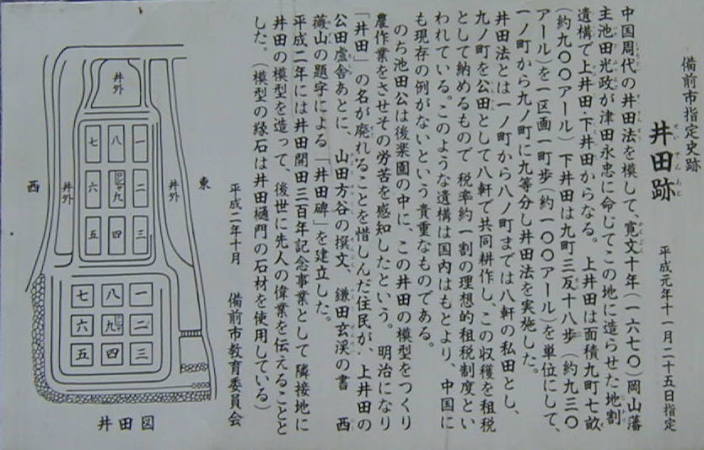 備前市指定史跡
井田跡
せいでんあと
平成元年十一月二十五日指定
中国周代の井田法を模して、寛文十年(一六七〇)岡山藩
主池田光政が津田永忠に命じてこの地に造らせた地割
遺構で上井田・下井田からなる。上井田は面積九町七畝
(約九〇〇アール)下井田は九町三反十八歩(約九三〇
アール)を一区画一町歩(約一〇〇アール)を単位にして、
一ノ町から九ノ町に九等分し井田法を実施した。
井田法とは一ノ町から八ノ町までは八軒の私田とし、
九ノ町を公田として八軒で共同耕作し、この収穫を租税
として納めるもので 税率約一割の理想的租税制度とい
われている。このような遺構は国内はもとより、中国に
も現存の例がないという貴重なものである。
のち池田公は後楽園の中に、この井田の模型をつくり
農作業をさせその労苦を感知したという。明治になり
「井田」の名が廃れることを惜しんだ住民が、上井田の
公田盧舎あとに、山田方谷の撰文、鎌田玄渓の書 西
薇山の題字による「井田碑」を建立した。
平成二年には井田開田三百年記念事業として隣接地に
井田の模型を造って、後世に先人の偉業を伝えることと
した。(模型の縁石は井田樋門の石材を使用している)
平成二年十月 備前市教育委員会
東
西
井外
井外
井外
七 八 一
六 九 二
五 四 三
七 八 一
六 九 二
五 四 三
井田図